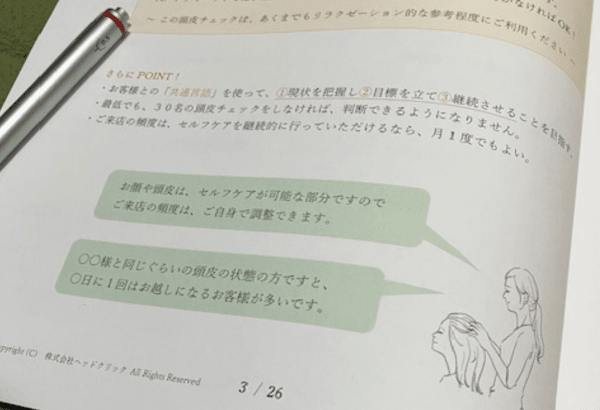 なければOK！
～ この頭皮チェックは、あくまでもリラクゼーション的な参考程度にご利用ください ～
さらに POINT！
・お客様との「共通言語」を使って、①現状を把握し②目標を立て③継続させることを目指す。
・最低でも、３０名の頭皮チェックをしなければ、判断できるようになりません。
・ご来店の頻度は、セルフケアを継続的に行っていただけるなら、月１度でもよい。
お顔や頭皮は、セルフケアが可能な部分ですので
ご来店の頻度は、ご自身で調整できます。
〇〇様と同じぐらいの頭皮の状態の方ですと、
〇日に１回はお越しになるお客様が多いです。
opyright (C) 株式会社ヘッドクリック All Rights Reserved
3 / 26